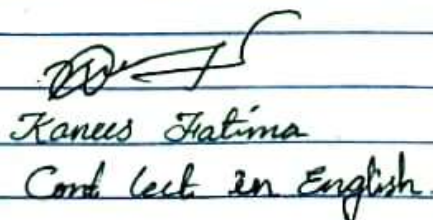 Kanees Fatima
Cont lect. in English